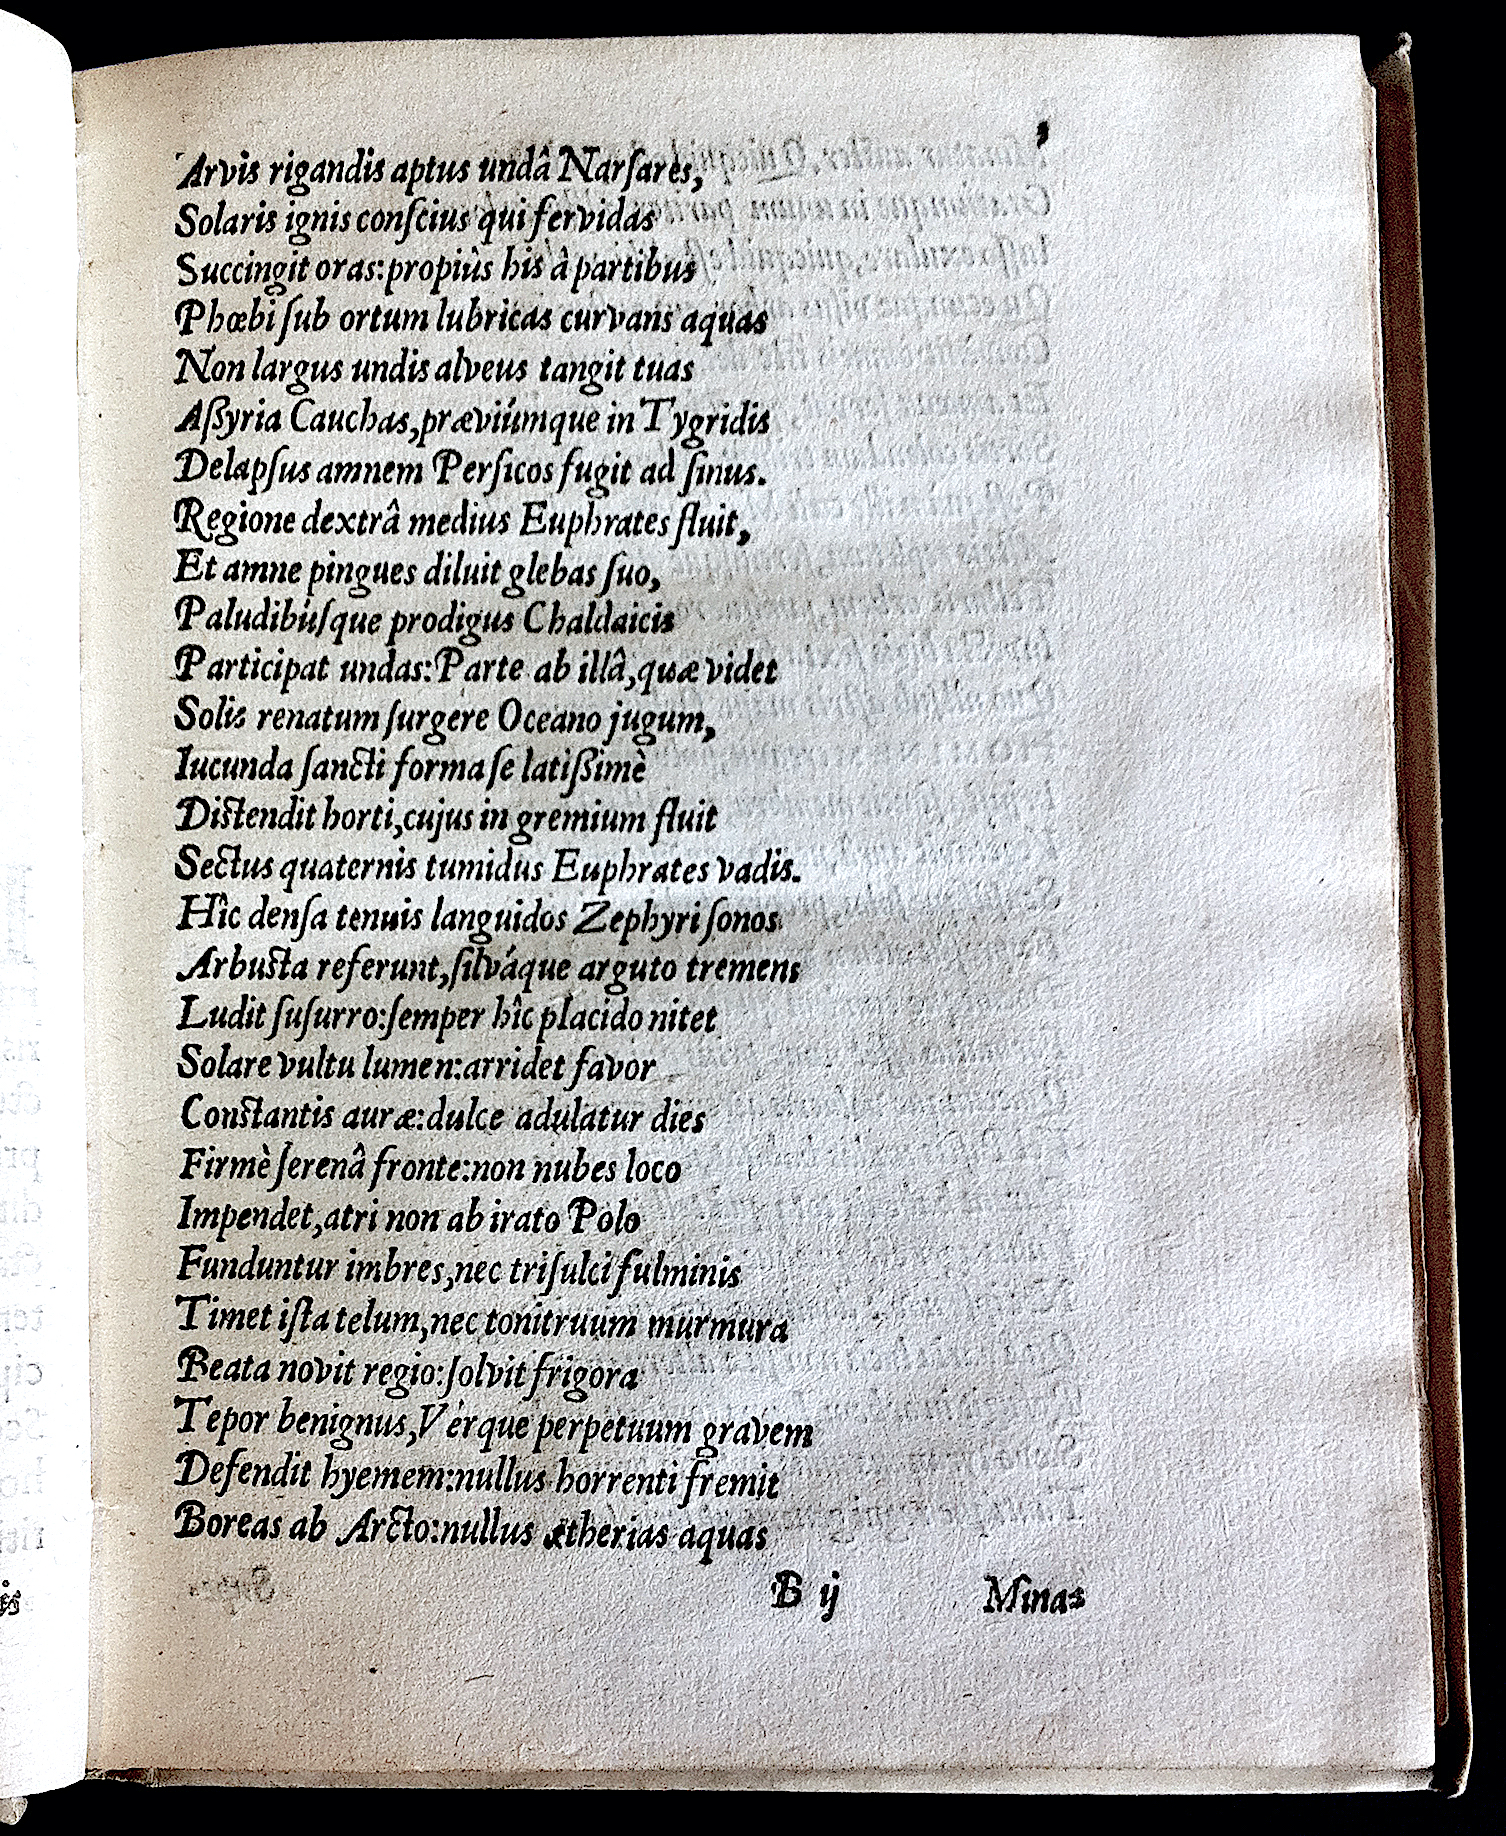 Arvis rigandis aptus undâ Narſares,
Solaris ignis conſcius qui fervidas
Succingit oras: propiùs his â partibus
Phœbi ſub ortum lubricas curvans aquas
Non largus undis alveus tangit tuas
Aſſyria Cauchas, præviúmque in Tygridis
Delapſus amnem Perſicos fugit ad ſinus.
Regione dextrâ medius Euphrates fluit,
Et amne pingues diluit glebas ſuo,
Paludibúſque prodigus Chaldaicis
Participat undas: Parte ab illâ, quæ videt
Solis renatum ſurgere Oceano jugum,
Iucunda ſancti forma ſe latiſſimè
Distendit horti, cujus in gremium fluit
Sectus quaternis tumidus Euphrates vadis.
Hîc denſa tenuis languidos Zephyri ſonos
Arbusta referunt, ſilváque arguto tremens
Ludit ſuſurro: ſemper hîc placido nitet
Solare vultu lumen: arridet favor
Constantis auræ: dulce adulatur dies
Firmè ſerenâ fronte: non nubes loco
Impendet, atri non ab irato Polo
Funduntur imbres, nec triſulci fulminis
Timet iſta telum, nec tonitruum murmura
Beata novit regio: ſolvit frigora
Tepor benignus, Vérque perpetuum gravem
Defendit hyemem: nullus horrenti fremit
Boreas ab Arcto: nullus ætherias aquas
B ij Minas